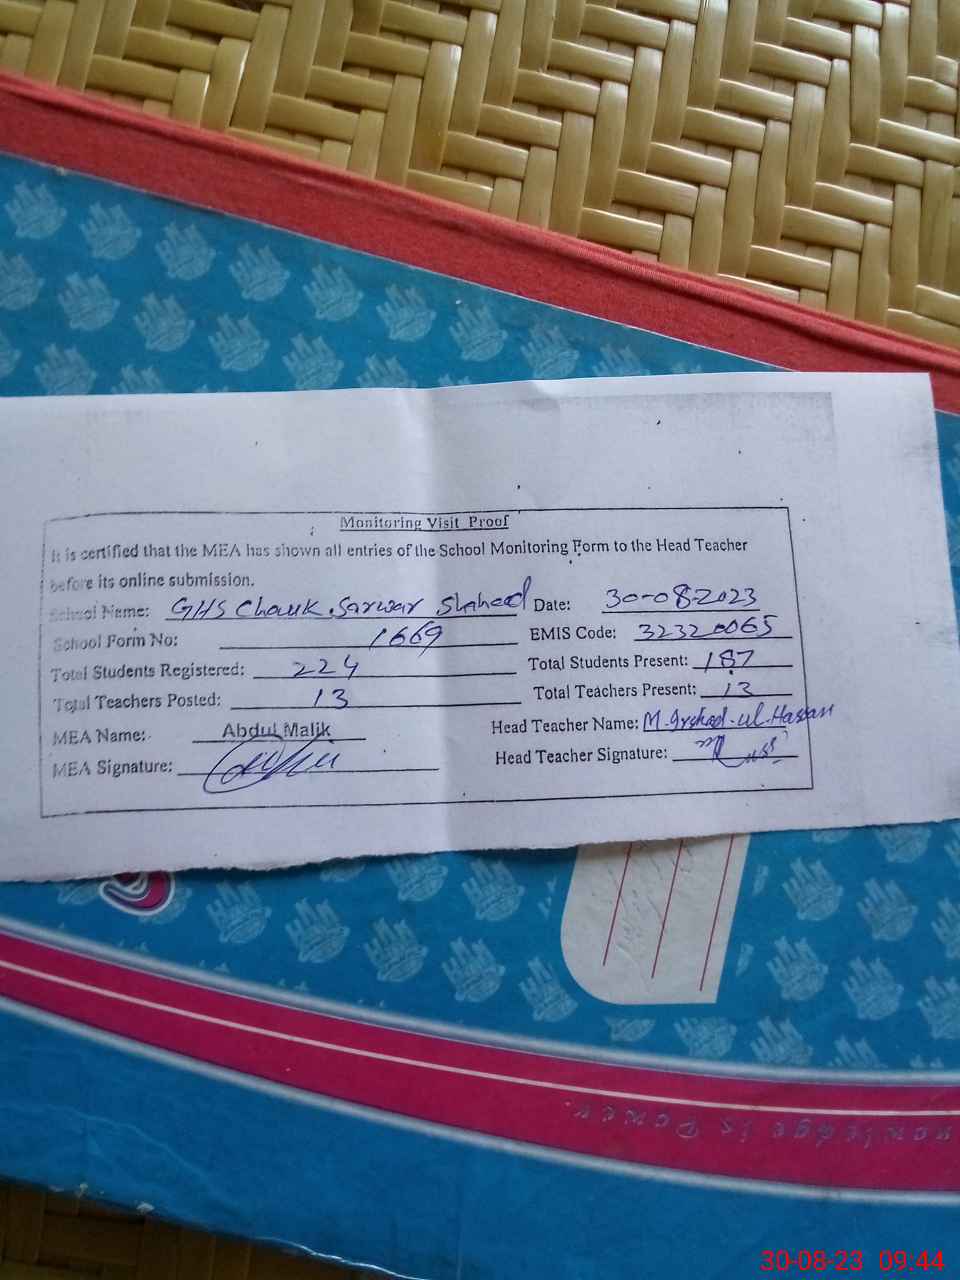 Monitoring Visit Proof
It is certified that the MEA has shown all entries of the School Monitoring Form to the Head Teacher
before its online submission.
School Name: GHS Chouk Sarwar Shaheed Date: 30-08-2023
School Form No: 1669 EMIS Code: 32320065
Total Students Registered: 224 Total Students Present: 187
Total Teachers Posted: 13 Total Teachers Present: 13
MEA Name: Abdul Malik Head Teacher Name: M. Irshad-ul-Hassan
MEA Signature: Head Teacher Signature:
nowledge is Power.
30-08-23 09:44